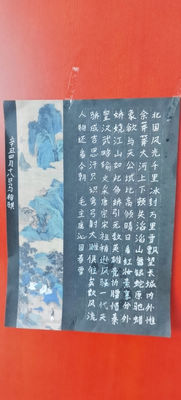 北国风光千里冰封万里雪飘望长城内外惟
余莽莽大河上下顿失滔滔山舞银蛇原驰蜡
象欲与天公试比高须晴日看红妆素裹分外
妖娆江山如此多娇引无数英雄竞折腰惜秦
皇汉武略输文采唐宗宋祖稍逊风骚一代天
骄成吉思汗只识弯弓射大雕俱往矣数风流
人物还看今朝 毛主席沁园春雪
辛丑四月十八日马